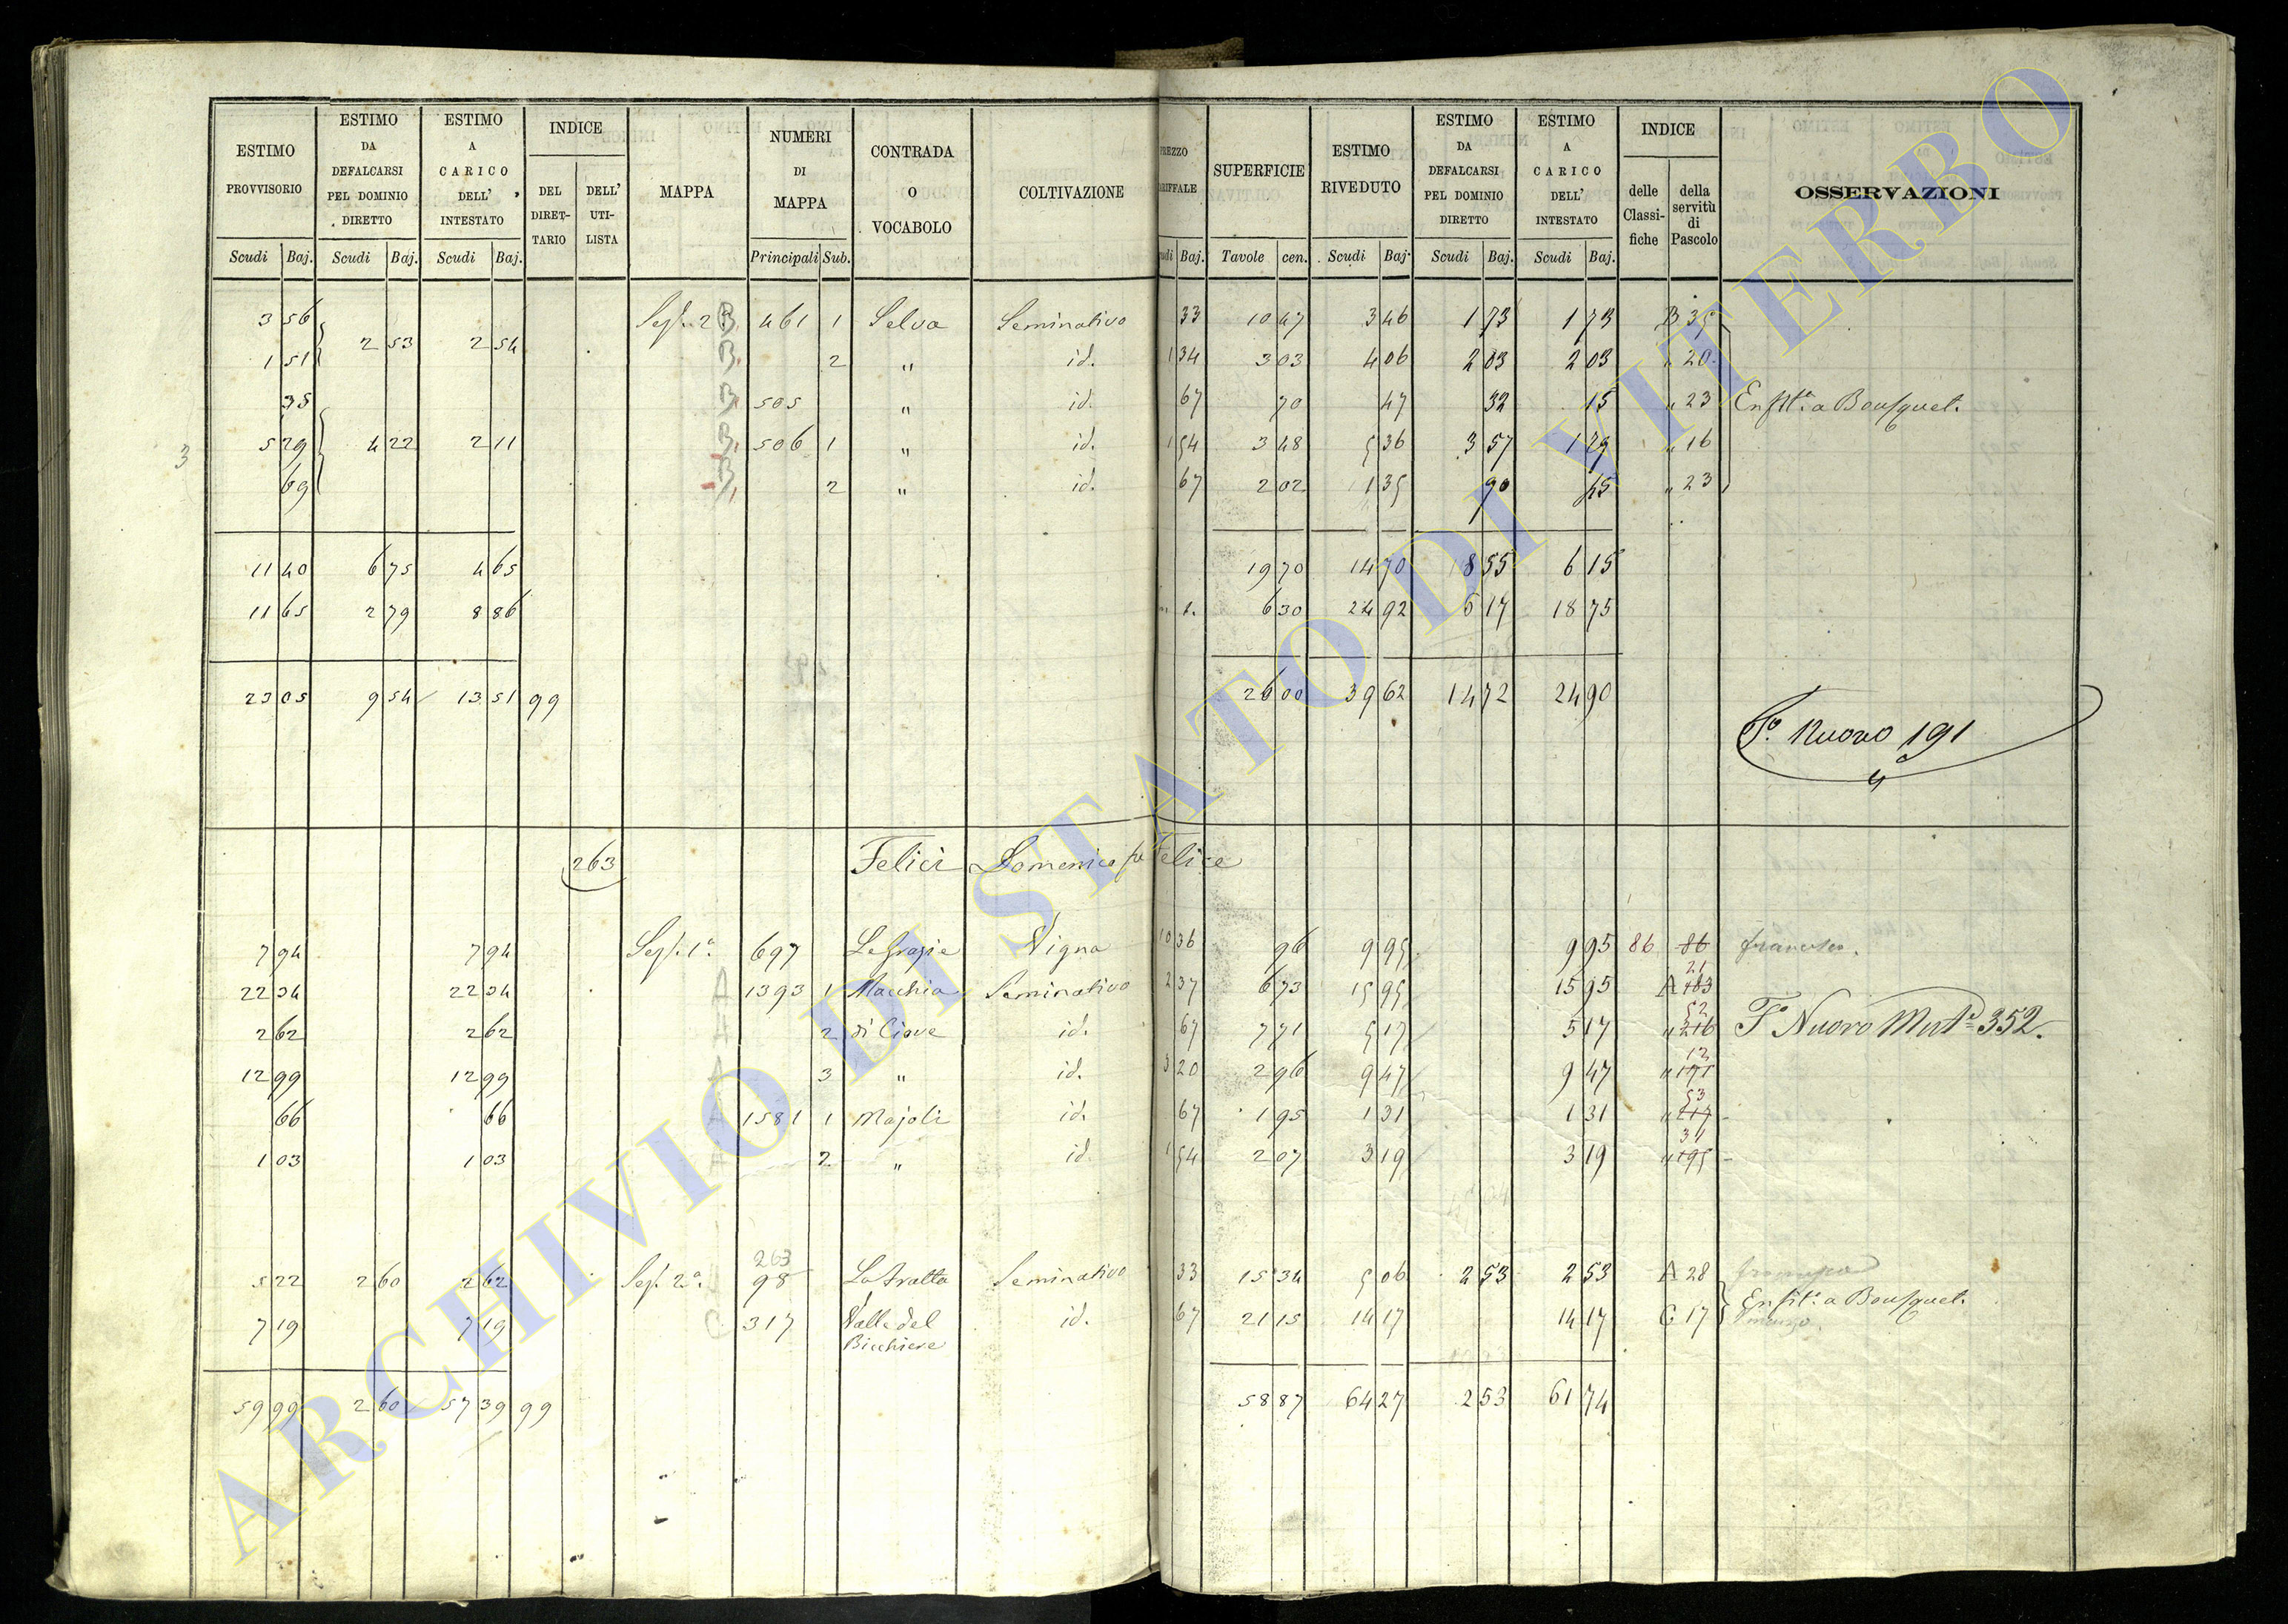 ESTIMO PROVVISORIO | ESTIMO DA DEFALCARSI PEL DOMINIO DIRETTO | ESTIMO A CARICO DELL' INTESTATO | INDICE | MAPPA | NUMERI DI MAPPA | CONTRADA O VOCABOLO | COLTIVAZIONE | PREZZO TARIFFALE | SUPERFICIE | ESTIMO RIVEDUTO | ESTIMO DA DEFALCARSI PEL DOMINIO DIRETTO | ESTIMO A CARICO DELL' INTESTATO | INDICE | OSSERVAZIONI
DEL DIRET-TARIO | DELL' UTI-LISTA | delle Classi-fiche | della servitù di Pascolo
Scudi Baj. | Scudi Baj. | Scudi Baj. | Principali Sub. | Scudi Baj. | Tavole cen. | Scudi Baj. | Scudi Baj. | Scudi Baj.
3 56 | 2 53 | 2 54 | Sez. 2 B | 461 | 1 | Selva | Seminativo | 33 | 10 47 | 3 46 | 1 73 | 1 73 | B 35
1 51 | B. | 2 | " | id. | 1 34 | 3 03 | 4 06 | 2 03 | 2 03 | " 20
35 | B. | 505 | " | id. | 67 | 70 | 47 | 32 | 15 | " 23 | Enfit.a a Bousquet.
5 29 | 4 22 | 2 11 | B. | 506 | 1 | " | id. | 1 54 | 3 48 | 5 36 | 3 57 | 1 79 | " 16
69 | B. | 2 | " | id. | 67 | 2 02 | 1 35 | 90 | 45 | " 23
3
11 40 | 6 75 | 4 65 | 19 70 | 14 70 | 8 55 | 6 15
11 65 | 2 79 | 8 86 | 6 30 | 24 92 | 6 17 | 18 75
23 05 | 9 54 | 13 51 | 99 | 26 00 | 39 62 | 14 72 | 24 90
F.o Nuovo 191
263 | Felici Domenico fu Felice
7 94 | 7 94 | Sez. 1a | 697 | Le Grazie | Vigna | 10 36 | 96 | 9 95 | 9 95 | 86 | 86 | francesco.
22 34 | 22 34 | A | 1393 | 1 | Macchia | Seminativo | 2 37 | 6 73 | 15 95 | 15 95 | A 183 21
2 62 | 2 62 | A | 2 | di Ciave | id. | 67 | 7 71 | 5 17 | 5 17 | " 216 52 | F.o Nuovo Mut.a 352.
12 99 | 12 99 | A | 3 | " | id. | 3 20 | 2 96 | 9 47 | 9 47 | " 171 12
66 | 66 | A | 1581 | 1 | Majoli | id. | 67 | 1 95 | 1 31 | 1 31 | " 217 53
1 03 | 1 03 | A | 2 | " | id. | 1 54 | 2 07 | 3 19 | 3 19 | " 195 31
263
5 22 | 2 60 | 2 62 | Sez. 2a | 98 | Seminativo | 33 | 15 34 | 5 06 | 2 53 | 2 53 | A 28
Enfit.a a Bousquet.
7 19 | 7 19 | C | 317 | Valle del Bicchiere | id. | 67 | 21 15 | 14 17 | 14 17 | C 17
59 99 | 2 60 | 57 39 | 99 | 58 87 | 64 27 | 2 53 | 61 74
ARCHIVIO DI STATO DI VITERBO